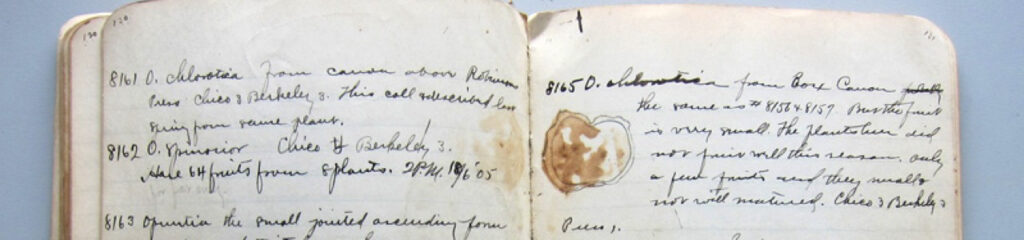 120
120
8161 O. chlorotica from canon above Robinson
Press. Chico 3 Berkeley 3. This coll & described
from same plant.
8162 O. spinosior Chico 4 Berkeley 3.
Have 64 fruits from 8 plants. 2 P.M. '05
8163 Opuntia the small jointed ascending form
121
8165 O. chlorotica from Box Canon
the same as # 8156 & 8157. But the fruit
is very small. The plants here did
not fruit well this season, only
a few fruits and they small &
not well matured. Chico 3 Berkeley 3
Press 1.